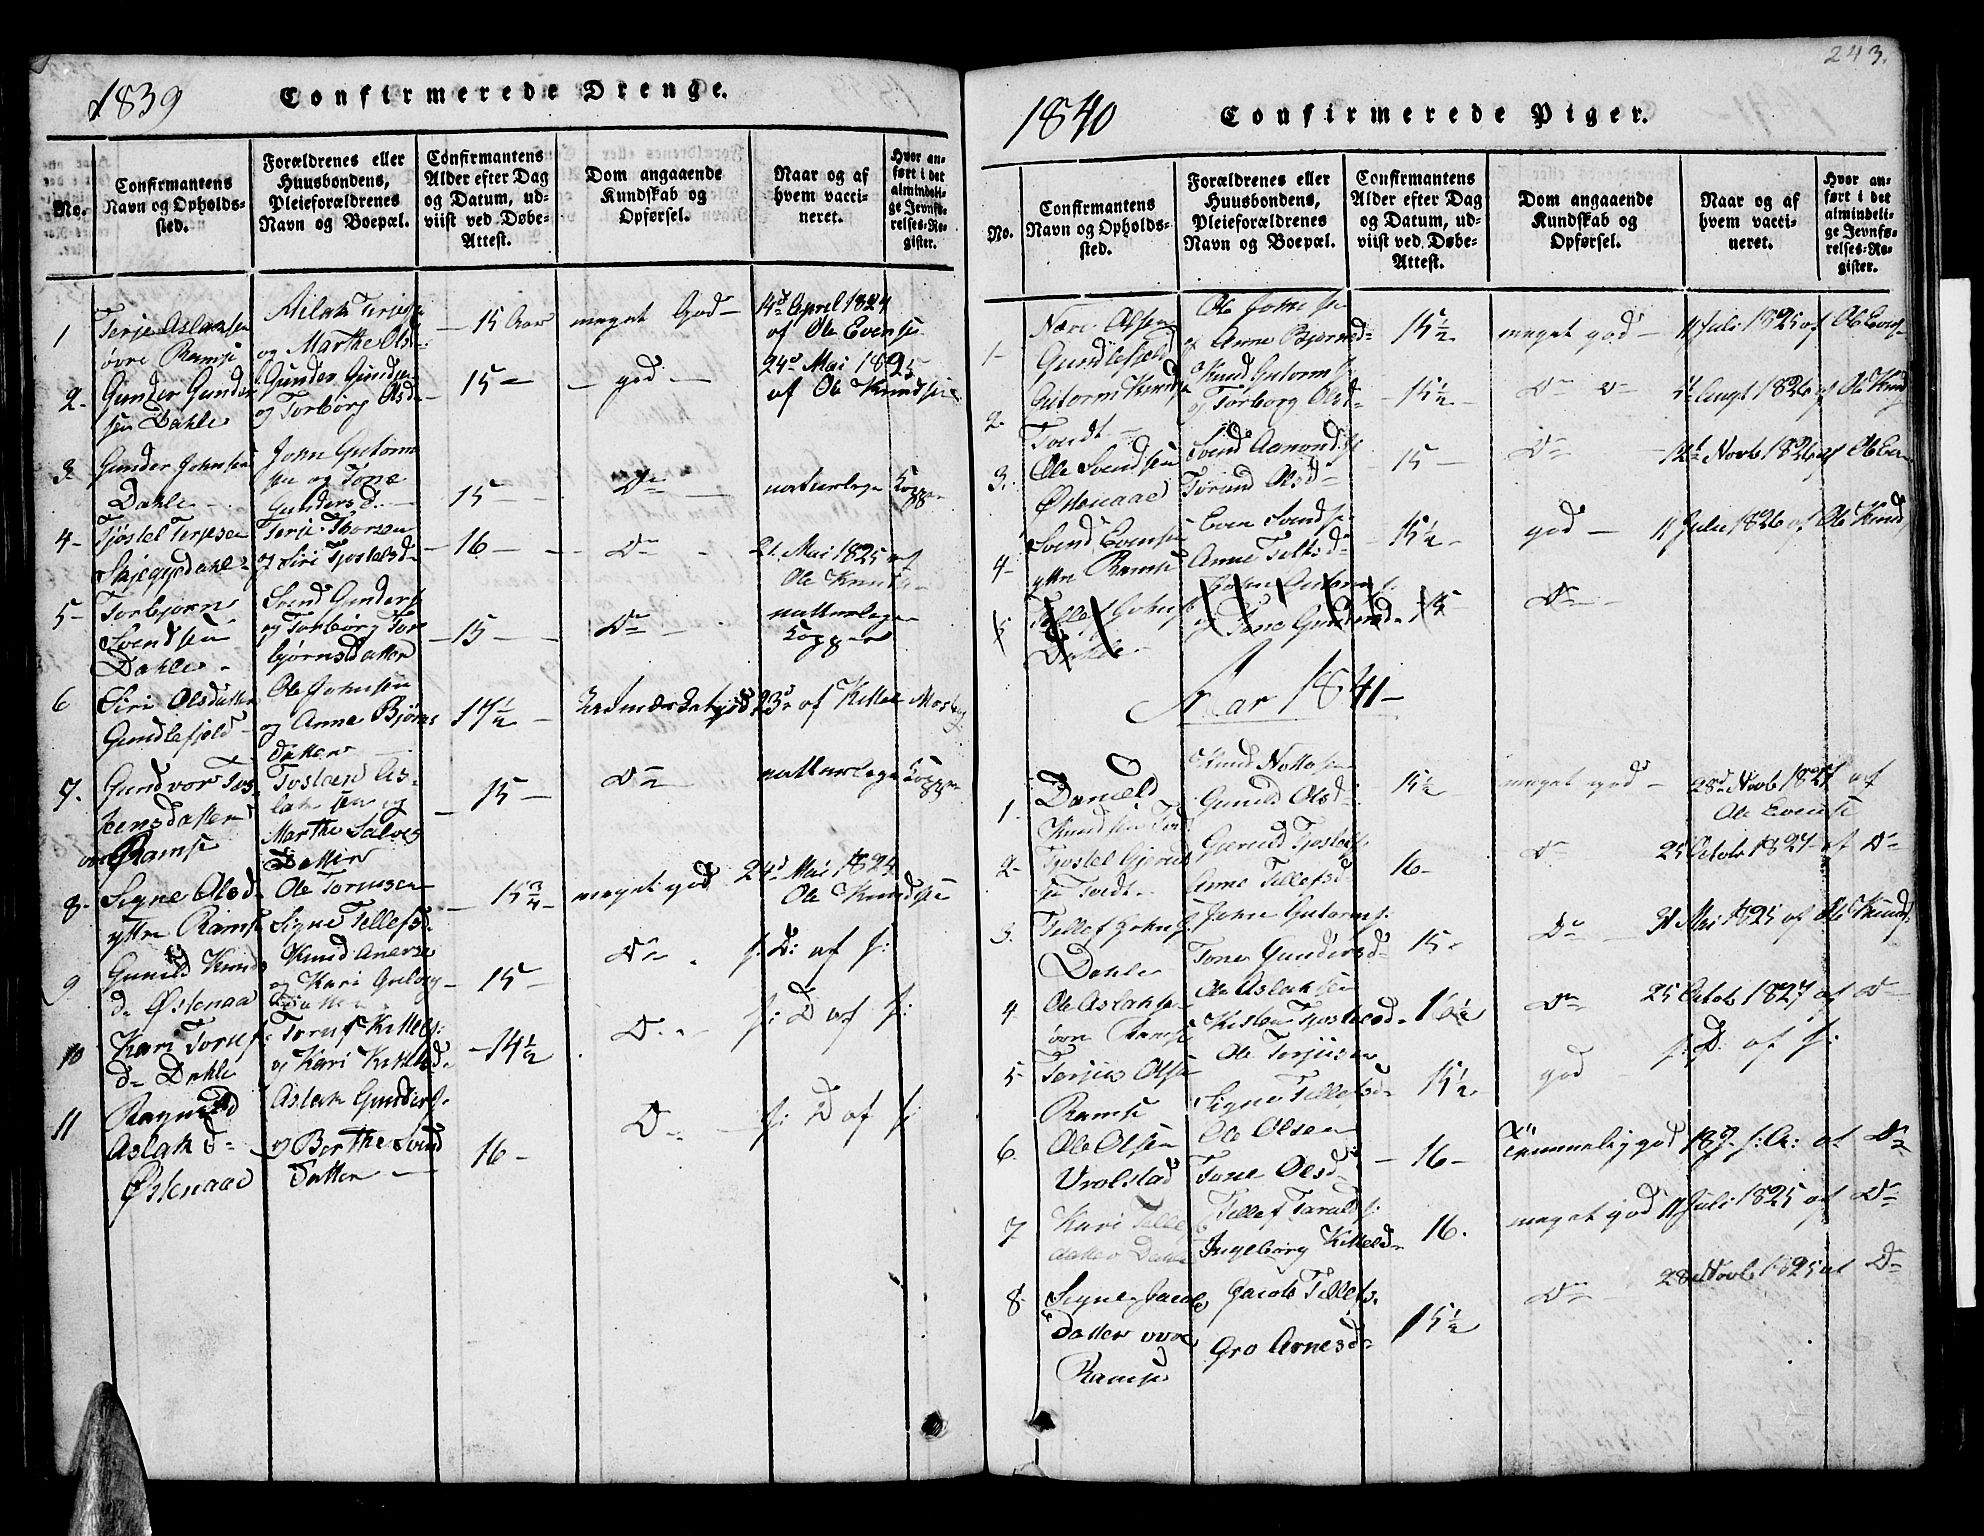 243.
1839 Confirmerede Drenge.
No.
Confirmantens
Navn og Opholds-
sted.
Forældrenes eller
Huusbondens,
Pleieforældrenes
Navn og Boepæl.
Confirmantens
Alder efter Dag
og Datum, ud-
viist ved Døbe-
Attest.
Dom angaaende
Kundskab og
Opførsel.
Naar og af
hvem vacci-
neret.
Hvor an-
ført i det
almindeli-
ge Jevnfø-
relses-Re-
gister.
1
Terje Aslaksen
øvre Ramse
Aslak Terjesen
og Marthe Olsd.
15 Aar
meget God
14d April 1824
af Ole Evense
2.
Gunder Gunder
sen Dahle
Gunder Gunders
og Torborg Olsd
15
god
24d Mai 1825
af Ole Knudsen
3
Gunder Johnsen
Dahle
John Gutorm
sen og Tone
Gundersd
15
Do
naturlege Kopper
4
Tjøstel Terjesen
Skjeggedahl
Terje Thorsen
og Siri Tjostelsd
16
Do
21. Mai 1825 af
Ole Knuds
5
Torbjørn
Svendsen
Dahle
Svend Gunders
og Torborg Tor
bjørnsdatter
15
Do
naturlege
Kopper
6
Siri Olsdatter
Gundlefjeld
Ole Johnsen
og Anne Bjørns
datter
14½
23d af Kittel Mosby
7.
Gundvor Tos-
tensdatter
øvre Ramse
Tosten As-
lak sen og
Marthe Salves
Datter
15
Do
naturlege Kopper
8
Signe Olsd
yttre Ramse
Ole Torensen
Signe Tellefsd.
15¾
meget god
24d Mai 1824
Ole Knudsen
9
Gunild Knuds
d. Østenaa
Knud
og Kari
datter
15
Do
s: D: af s:
10
Kari Toruf
d Dahle
Toruf Kittels:
og Kari Kittelsd
14½
Do
s: D af s:
11
Ragnild
Aslaksd
Østenaae
Aslak Gunders.
og Berthe Svend
Datter
16
Do
s: D af s:
1840 Confirmerede Piger.
No.
Confirmantens
Navn og Opholds-
sted.
Forældrenes eller
Huusbondens,
Pleieforældrenes
Navn og Boepæl.
Confirmantens
Alder efter Dag
og Datum, ud-
viist ved Døbe-
Attest.
Dom angaaende
Kundskab og
Opførsel.
Naar og af
hvem vacci-
neret.
Hvor an-
ført i det
almindeli-
ge Jevnfø-
relses-Re-
gister.
1
Olsen
Gundlefjeld
Ole Johnsen
og Anne Bjornsd
15½
meget god
11 Juli 1825 af Ole Evens
2.
Gutorm Knuds
Tvedt
Knud Gutorms
og Torborg Olsd
15½
Do
Augt 1826 af Ole Knuds
3.
Ole Svendsen
Østenaae
Svend Aamonds
Torund Olsd
15
Do
12d Novb 1826 af Ole Even
4
Svend Evensen
yttre Ramse
Even Svends
Anne Tellefsd
15½
god
11 Juli 1826 af Ole Knuds
5
Tellef Johns
Dahle
John Gutorms
og Tone Gundersd
15
Do
Aar 1841
1.
Daniel
Knudsen
Knud
Gunild Olsd
15½
meget god
28d Novb 1827 af
Ole Evense
2
Tjostel
sen Tvedt
Tjostels.
Anne Tellefsd
16
Do
25 Octob 1827 af Do
3.
Tellef Johns.
Dahle
John Gutorms.
Tone Gundersd
15
Do
31 Mai 1825 af Ole Knuds.
4
Ole Aslaksen
øvre Ramse
Ole Aslaksen
Kisten Tjostelsd
Do
25 Octob 1827 af Do
5
Terjus Olsen
Ramse
Ole Terjusen
Signe Tellefsd
15½
god
s: D. af s:
6.
Ole Olsen
Vralstad
Ole Olsen
Tone Olsd
16
Temmelig god
s: A: af Do
7
Kari Tellefs
datter Dahle
Tellef Taralds:
Ingeborg Kittelsd
16.
meget god
11 Juli 1825 af Do
8
Signe Jacobs
Datter øvre
Ramse
Jacob Tellefs.
Gro Arnesd
15½
Do
28d Novb 1825 af Do